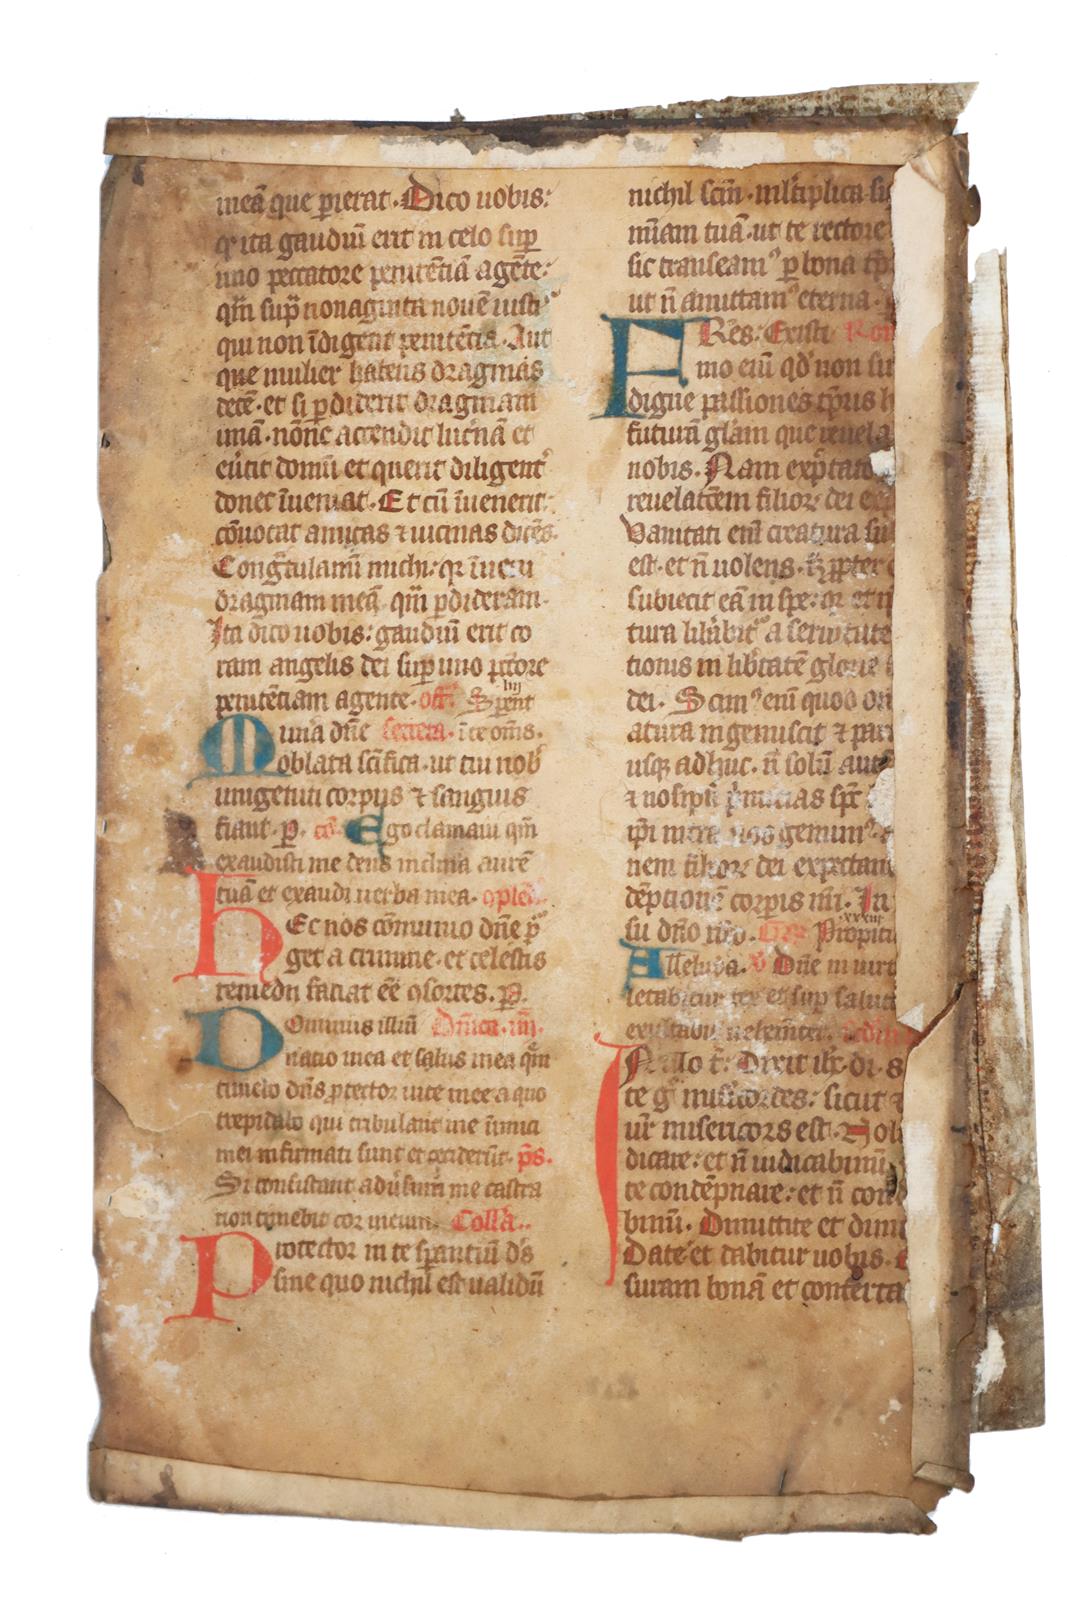 meā que perierat. Dico uobis:
qr ita gaudiū erit in celo suꝑ
uno peccatore penitētiā agēte:
qm̄ supra nonaginta nouē iustis
qui non īdigēt penitētia. Aut
que mulier habens dragmas
decē. et si ꝑdiderit dragmam
unā. nōne accendit lucernā et
euertit domū et querit diligenter
donec īueniat. Et cū īuenerit:
cōuocat amicas ⁊ uicinas dicēs.
Congratulamī michi: qr īueni
dragmam meā quā ꝑdideram.
Ita dico uobis: gaudiū erit co
ram angelis dei suꝑ uno pctore
penitētiam agente. off. Sperent
Munera dn̄e secreta. ī te om̄s.
oblata scīfica. ut tui nobis
unigeniti corpus ⁊ sanguis
fiant. p. co. Ego clamaui qm̄
exaudisti me deus inclina aurē
tuā et exaudi uerba mea. ꝯplen.
Hec nos cōmunio dn̄e pur
get a crimine. et celestis
remedii faciat eē ꝯsortes. p.
Dominus illum Dn̄ica. iiii.
natio mea et salus mea quē
timebo dn̄s ꝓtector uite mee a quo
trepidabo qui tribulant me īimici
mei infirmati sunt et ceciderūt. ps.
Si consistant aduersum me castra
non timebit cor meum. Collā.
Protector in te sperantiū ds
sine quo nichil est ualidū
nichil scm̄. mltiplica su
mīam tuā. ut te rectore
sic transeamus ꝑ bona tp̄
ut n̄ amittamus eterna.
FRēs. Existi Rom
mo eni qd non su
digne passiones tp̄ris h
futurā gl̄am que reuela
nobis. Nam expectatio
reuelatōem filioꝝ dei ex
Vanitati enī creatura su
est. et n̄ uolens. sꝫ ꝓpter e
subiecit eā in spe: qr et
tura liberabitur a seruitute
tionis in libertatē glorie
dei. Scimus enī quod om
atura ingemiscit ⁊ par
usqꝫ adhuc. n̄ solū autē
⁊ nos ipsi primitias sps
ipsi intra nos gemimus
nem filioꝝ dei expectan
dēptionē corporis nr̄i. In
su dn̄o nr̄o. Gra. Propiciu
Alleluya. v. Dn̄e in uirt
letabitur rex et sup salut
exultabit uehemēter. Scdm
IN illo t. Dixit ihc. di. s
te g misericordes: sicut ⁊
ur misericors est. Noli
dicare: et n̄ iudicabimini
te condēpnare: et n̄ con
bimi. Dimittite et dimi
Date et dabitur uobis.
suram bonā et conferta